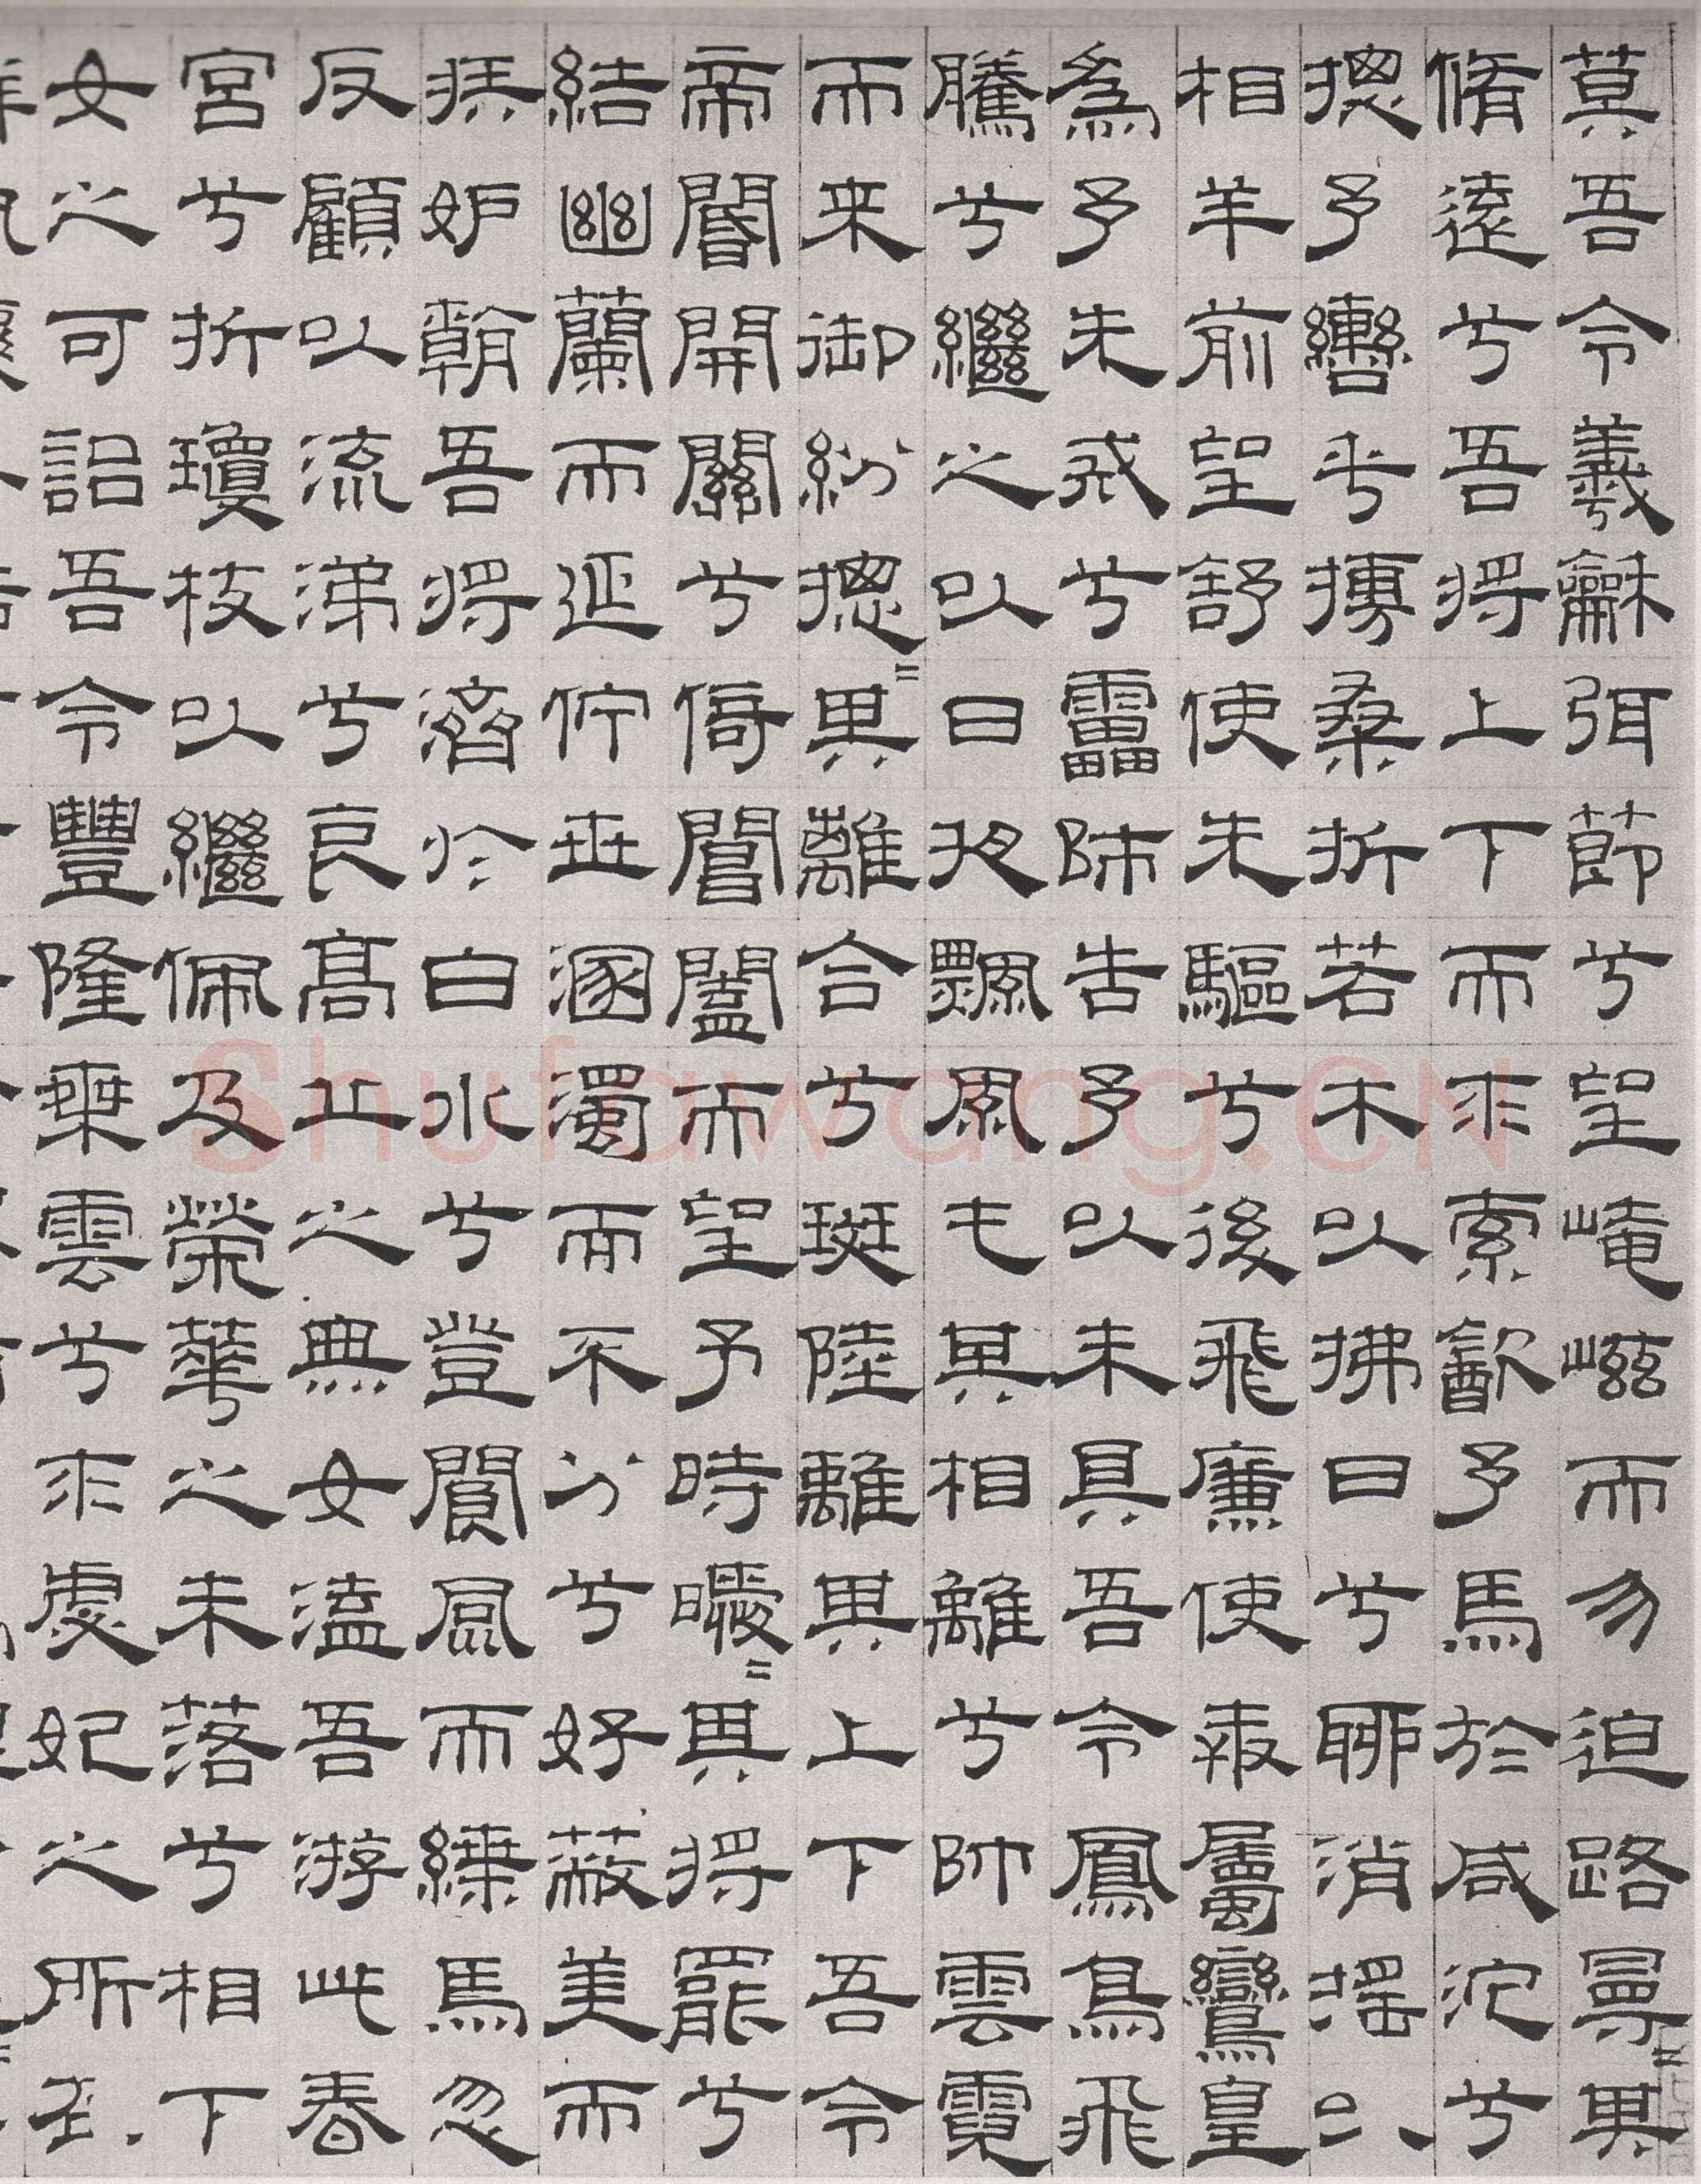 莫吾令羲龢弭節兮望崦嵫而勿迫路曼=其
脩遠兮吾将上下而求索㱃予馬於咸沱兮
揔予轡乎摶桑折若木以拂日兮聊消搖以
相羊前望舒使先驅兮後飛廉使奔屬鸞皇
為予先戒兮靁師告予以未具吾令鳳鳥飛
騰兮繼之以日夜飄風屯其相離兮帥雲霓
而来御紛揔=其離合兮斑陸離其上下吾令
帝閽開關兮倚閶闔而望予時曖=其将罷兮
結幽蘭而延佇世溷濁而不分兮好蔽美而
嫉妒朝吾将濟於白水兮登閬風而緤馬忽
反顧以流涕兮哀高丘之無女溘吾游此春
宮兮折瓊枝以繼佩及榮華之未落兮相下
女之可詒吾令豐隆椉雲兮求虙妃之所在
Shufawang.CN